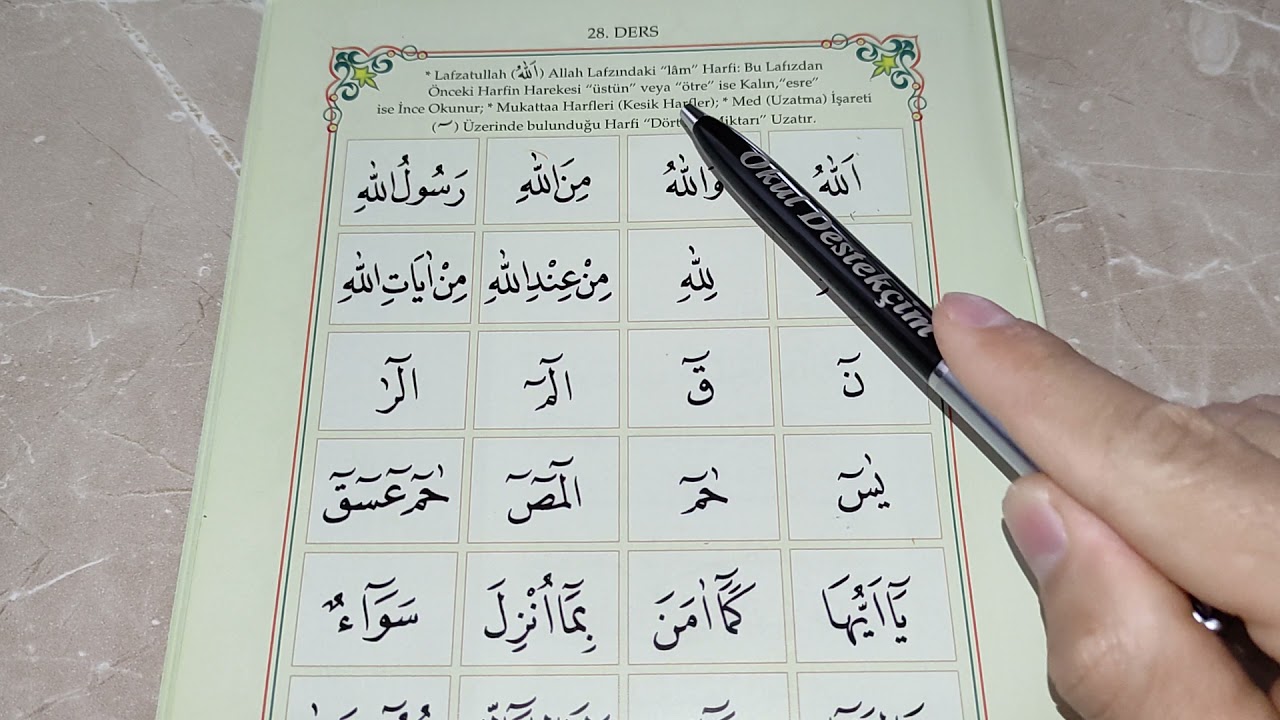 28. DERS
* Lafzatullah (اَللّٰهُ) Allah Lafzındaki “lâm” Harfi: Bu Lafızdan
Önceki Harfin Harekesi “üstün” veya “ötre” ise Kalın, “esre”
ise İnce Okunur; * Mukattaa Harfleri (Kesik Harfler); * Med (Uzatma) İşareti
(ٓ) Üzerinde bulunduğu Harfi “Dört Miktarı” Uzatır.
اَللّٰهُ وَاللّٰهُ مِنَ اللّٰهِ رَسُولُ اللّٰهِ
لِلّٰهِ مِنْ عِنْدِ اللّٰهِ مِنْ اٰيَاتِ اللّٰهِ
نٓ قٓ الٓمٓ الٓرٰ
يٰسٓ حٰمٓ الٓمٓصٓ حٰمٓ عٓسٓقٓ
يَٓا اَيُّهَا كَمَٓا اٰمَنَ بِمَٓا اُنْزِلَ سَوَٓاءٌ
Okul Destekçim